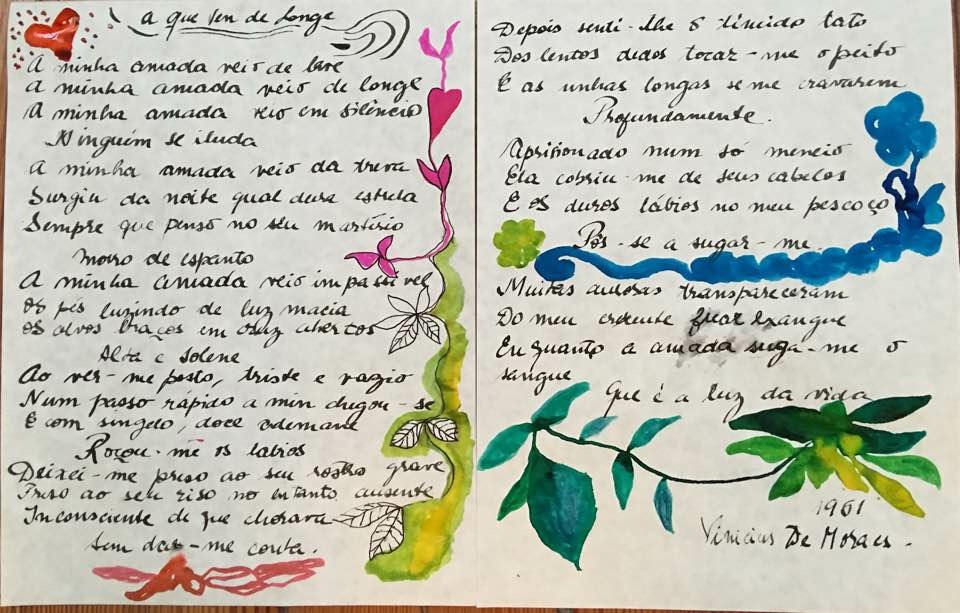 A que vem de longe
A minha amada veio de leve
A minha amada veio de longe
A minha amada veio em silêncio
Ninguém se iluda
A minha amada veio da treva
Surgiu da noite qual dura estrela
Sempre que penso no seu martírio
morro de espanto
A minha amada veio impassível
os pés luzindo de luz macia
os alvos braços em cruz abertos
Alta e solene
Ao ver-me posto, triste e vazio
Num passo rápido a mim chegou-se
E com singelo, doce ademane
Roçou-me os lábios
Deixei-me preso ao seu rosto grave
Preso ao seu riso no entanto ausente
Inconsciente de que chorava
Sem dar-me conta.
Depois senti-lhe o tímido tato
Dos lentos dedos tocar-me o peito
E as unhas longas se me cravarem
Profundamente.
Aprisionado num só meneio
Ela cobriu-me de seus cabelos
E os duros lábios no meu pescoço
Pôs-se a sugar-me.
Muitas auroras transpareceram
Do meu crescente ficar exangue
Enquanto a amada suga-me o
sangue
Que é a luz da vida
1961
Vinicius De Moraes.